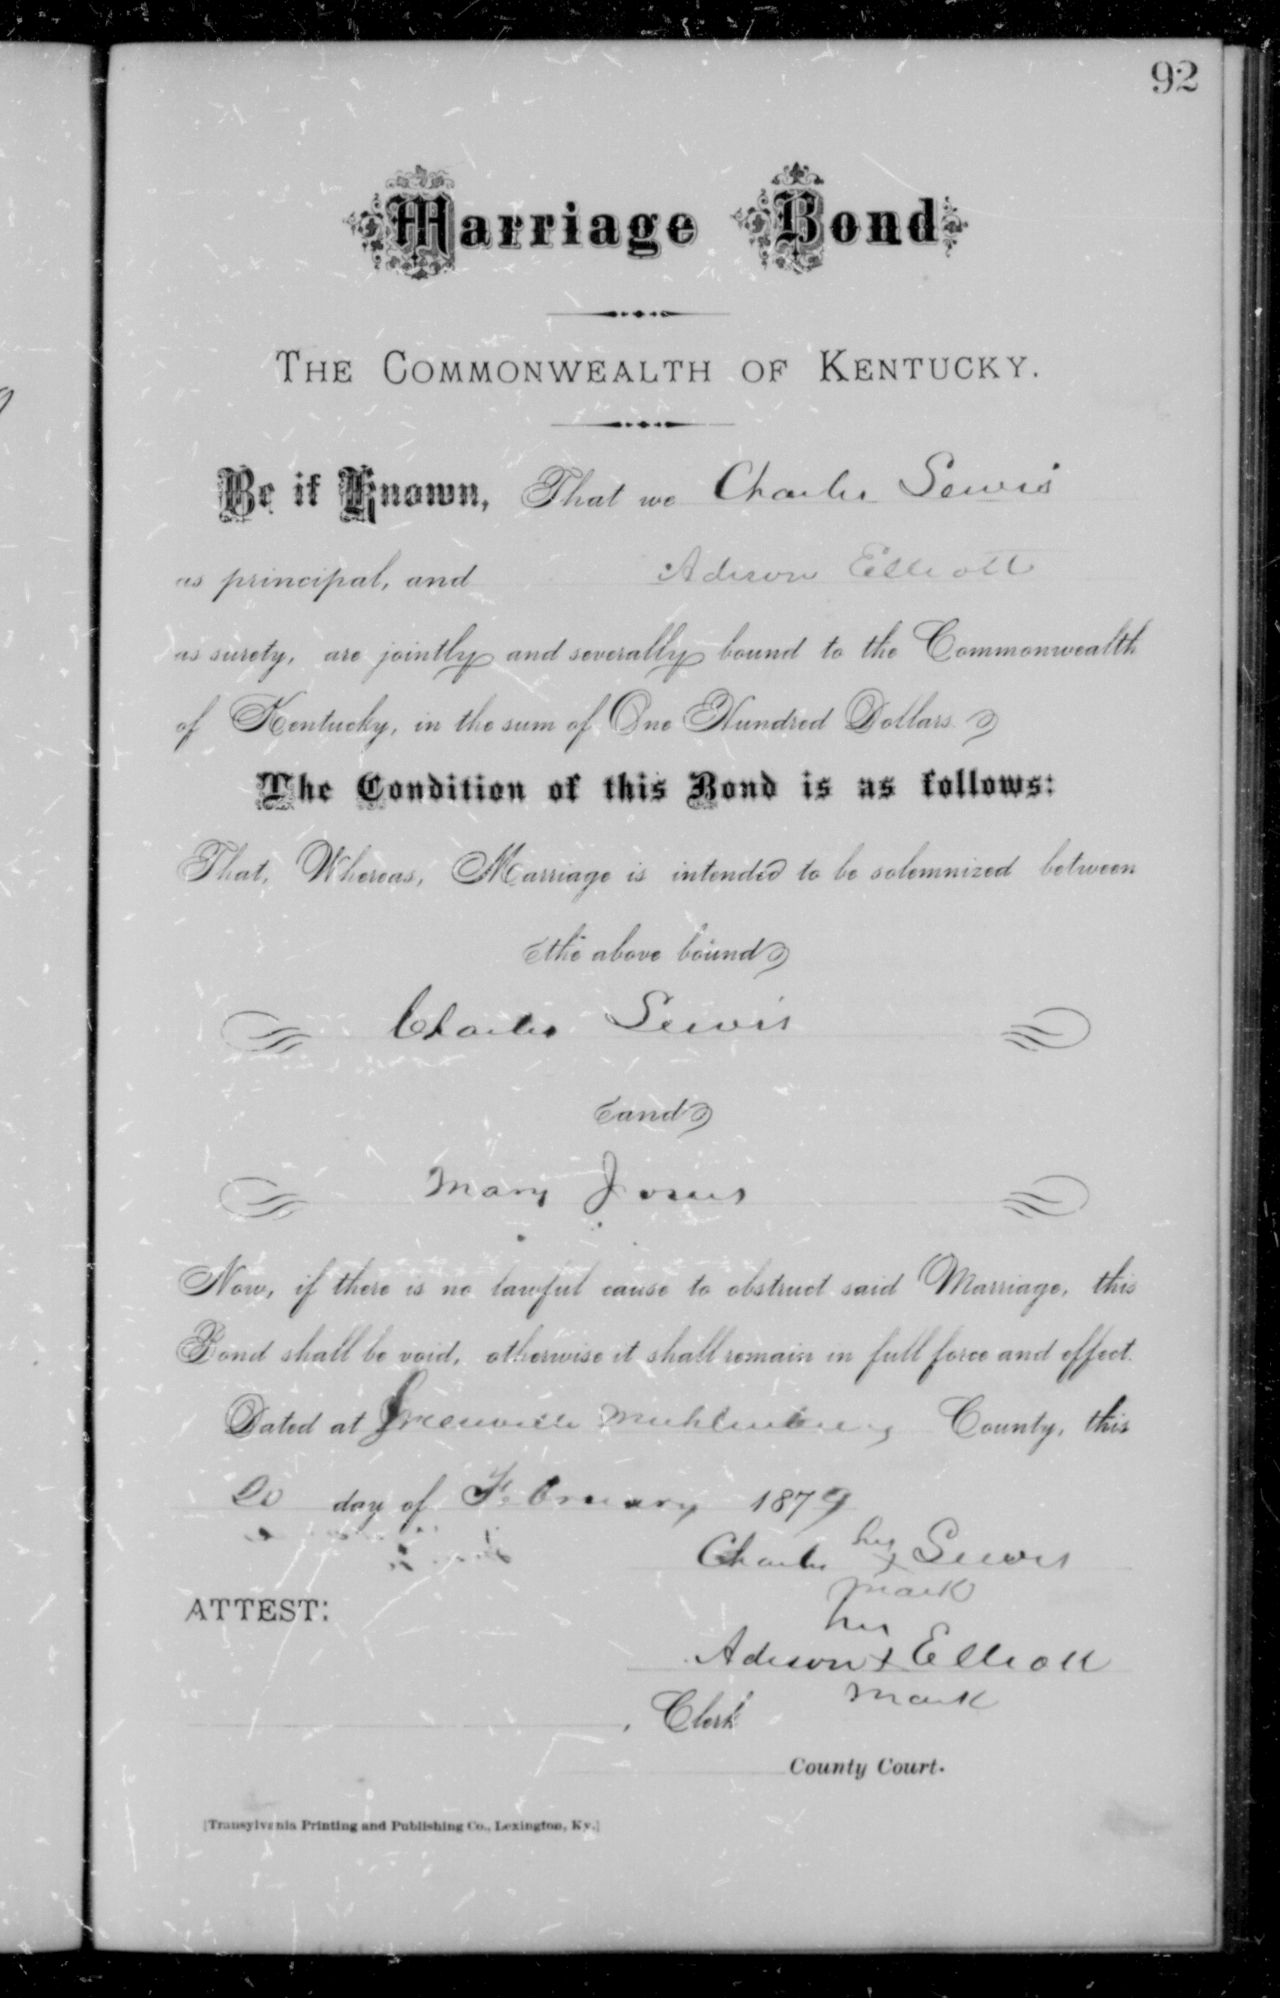 92
Marriage Bond
THE COMMONWEALTH OF KENTUCKY.
Be it Known, That we Charles Lewis
as principal, and Adison Elliott
as surety, are jointly and severally bound to the Commonwealth
of Kentucky, in the sum of One Hundred Dollars.
The Condition of this Bond is as follows:
That, Whereas, Marriage is intended to be solemnized between
the above bound
Charles Lewis
and
Mary Jones
Now, if there is no lawful cause to obstruct said Marriage, this
Bond shall be void, otherwise it shall remain in full force and effect.
Dated at Greenville Muhlenberg County, this
20 day of February 1879
Charles his x Lewis
mark
ATTEST:
his
Adison x Elliott
mark
, Clerk
County Court.
[Transylvania Printing and Publishing Co., Lexington, Ky.]